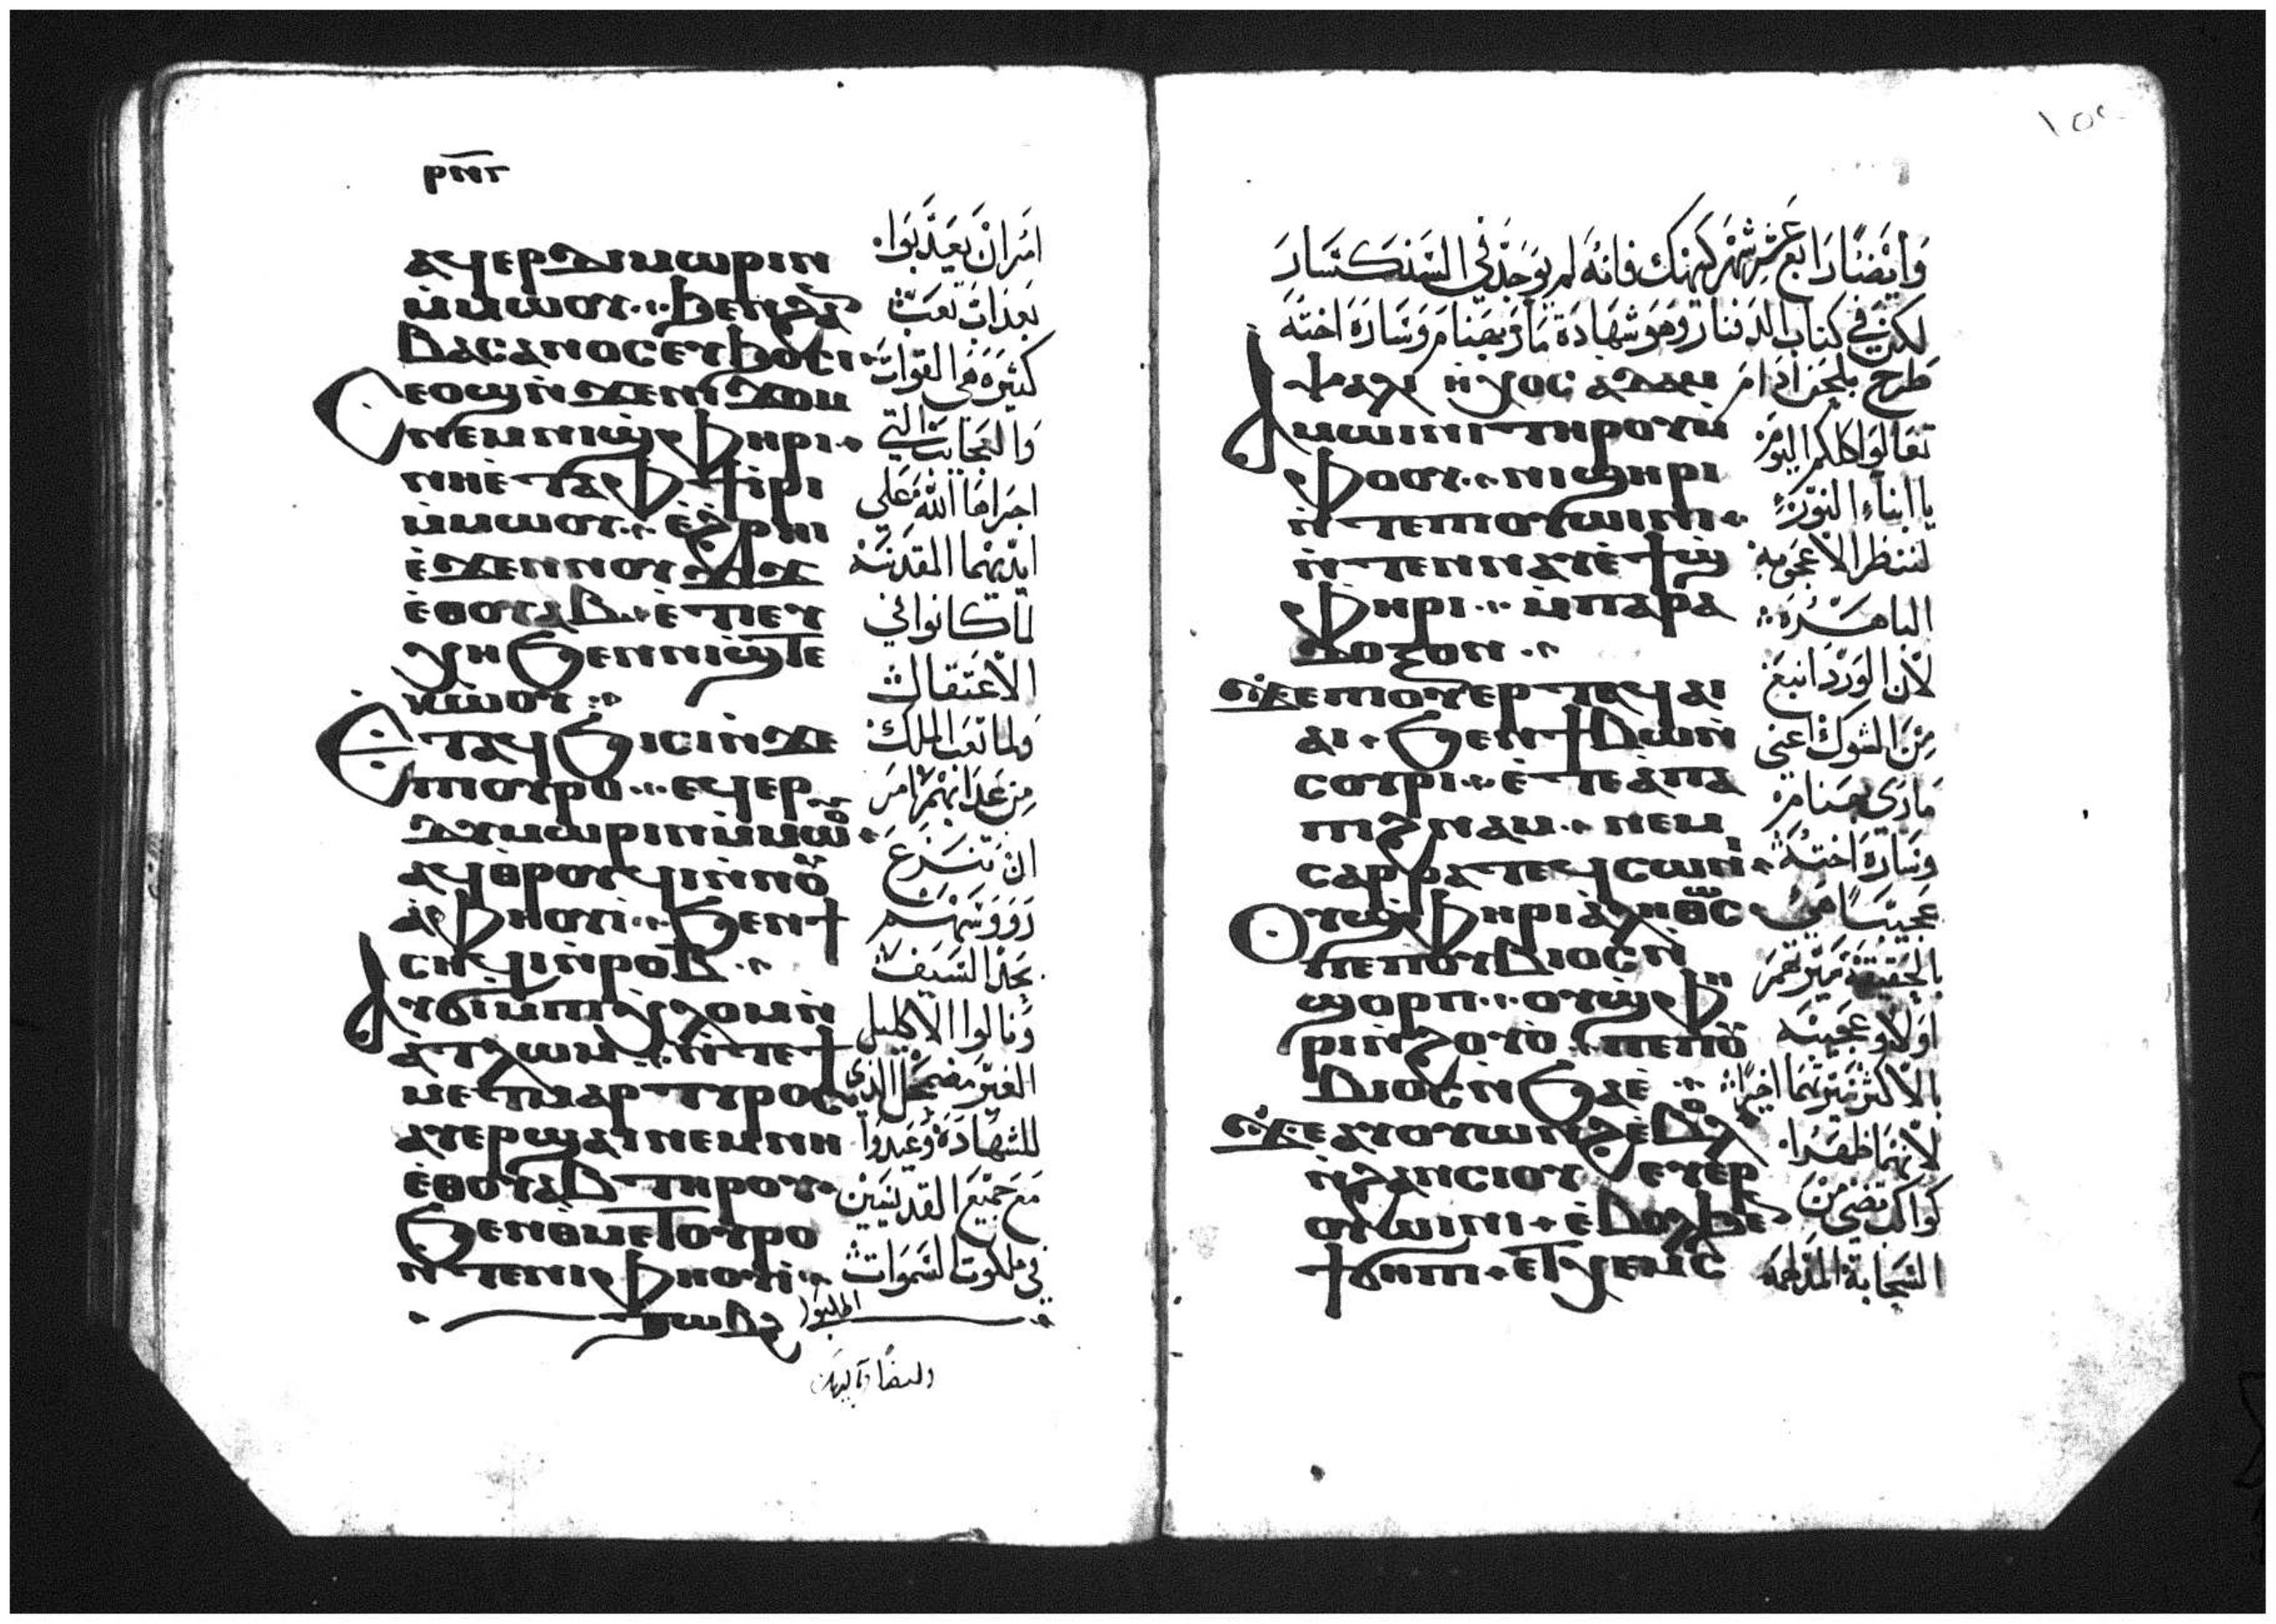 ⲣⲛⲅ
ⲁϥⲉⲣⲇⲓⲙⲱⲣⲓⲛ
ⲙ̀ⲙⲱⲟⲩ ϧⲉⲛϩⲁⲛ
ⲃⲁⲥⲁⲛⲟⲥ ⲉⲩϧⲟⲥⲓ
ⲥⲉⲟϣ ⲛ̀ϫⲉⲛⲓϫⲟⲙ
ⲛⲉⲙ ⲛⲓϣⲫⲏⲣⲓ
ⲛⲏⲉ̀ⲧⲁⲫϯ ⲓ̀ⲣⲓ
ⲙ̀ⲙⲱⲟⲩ ⲉ̀ϩⲣⲏⲓ
ⲉ̀ϫⲉⲛⲛⲟⲩϫⲓϫ
ⲉ̀ⲑⲟⲩⲁⲃ ⲉ̀ⲧⲓⲉⲩ
ⲭⲏ ϧⲉⲛⲛⲓϣⲧⲉ
ⲕⲱⲟⲩ
ⲉⲧⲁϥϧⲓⲥⲓ ⲛ̀ϫⲉ
ⲡⲟⲩⲣⲟ ⲉϥⲉⲣ
ⲇⲩⲙⲱⲣⲓⲛ ⲙ̀ⲙⲱⲟⲩ
ⲁϥⲑⲣⲟⲩϥⲓ ⲛ̀ⲛⲟⲩ
ⲁ̀ⲫⲏⲟⲩⲓ̀ ϧⲉⲛϯ
ⲥⲏϥⲓ ⲛ̀ⲣⲟⲃ
ⲁⲩϭⲓ ⲙ̀ⲡⲓⲭⲗⲟⲙ ⲛ̀
ⲁⲧⲗⲱⲙ ⲛ̀ⲧⲉϯ
ⲙⲉⲧⲙⲁⲣⲧⲩⲣⲟⲥ
ⲁⲩⲉⲣϣⲁⲓ ⲛⲉⲙ ⲛⲏ
ⲉ̀ⲑⲟⲩⲁⲃ ⲧⲏⲣⲟⲩ
ϧⲉⲛⲑⲙⲉⲧⲟⲩⲣⲟ
ⲛ̀ⲧⲉⲛⲓⲫⲏⲟⲩⲓ̀
ⲧⲱⲃϩ
امر ان يعذبوا
بعذاب تعب
كثيره هي القوات
والعجايب التي
اجراها الله علي
ايديهما المقدسه
لما كانوا في
الاعتقال
ولما تعب الملك
من عذابهم امر
ان تنزع
رووسهم
بحد السيف
ونالوا الاكليل
الغير مضمحل الذي
للشهاده وعيدوا
مع جميع القديسين
في ملكوت السموات
اطلبوا
وايضا رابع عشر شهر كيهك فانه لم يوجد في السنكسار
لكن في كتاب الدفنار وهو شهادة ماري بهنام وساره اخته
ⲯⲁⲗⲓ ⲏⲭⲟⲥ ⲁⲇⲁⲙ
ⲁⲙⲱⲓⲛⲓ ⲧⲏⲣⲟⲩ ⲙ̀
ⲫⲟⲟⲩ ⲛⲓϣⲏⲣⲓ
ⲛ̀ⲧⲉⲡⲟⲩⲱⲓⲛⲓ
ⲛ̀ⲧⲉⲛⲛⲁⲩ ⲉ̀ϯϣ
ⲫⲏⲣⲓ ⲙ̀ⲡⲁⲣⲁ
ⲇⲟⲝⲟⲛ
ϫⲉ ⲡⲟⲩⲉⲣⲧ ⲁϥⲁⲓ
ⲁⲓ ϧⲉⲛϯⲃⲱ ⲛ̀
ⲥⲟⲩⲣⲓ ⲉ̀ⲧⲉⲁⲡⲁ
ⲡⲓϩⲛⲁⲙ ⲛⲉⲙ
ⲥⲁⲣⲣⲁ ⲧⲉϥⲥⲱⲛⲓ
ⲟⲩϣⲫⲏⲣⲓ ⲁⲗⲏⲑⲱⲥ
ⲡⲉ ⲡⲟⲩⲃⲓⲟⲥ ⲛ̀
ϣⲟⲣⲡ ⲟⲩϣⲫⲏ
ⲣⲓ ⲛ̀ϩⲟⲩⲟ̀ ⲡⲉ ⲡⲟⲩ
ⲃⲓⲟⲥ ⲛ̀ϧⲁⲉ̀
ϫⲉ ⲁⲩⲟⲩⲱⲛϩ ⲉ̀ⲃⲟⲗ
ⲛ̀ϩⲁⲛⲥⲓⲟⲩ ⲉⲩⲉⲣ
ⲟⲩⲱⲓⲛⲓ ⲉ̀ⲃⲟⲗϧⲉⲛ
ϯϭⲏⲡⲓ ⲉⲧⲭⲉⲙⲥ
طرح بلحن ادام
تعالوا كلكم اليوم
يا ابناء النور
لننظر الاعجوبه
الباهره
لان الورد اينع
من الشوك اعني
ماري بهنام
وساره اخته
عجيبا هي
بالحقيقة سيرتهم
اولا وعجيبه
بالاكثر سيرتهما اخيرا
لانهما ظهرا
كواكب تضي من
السحابة المدلهمه